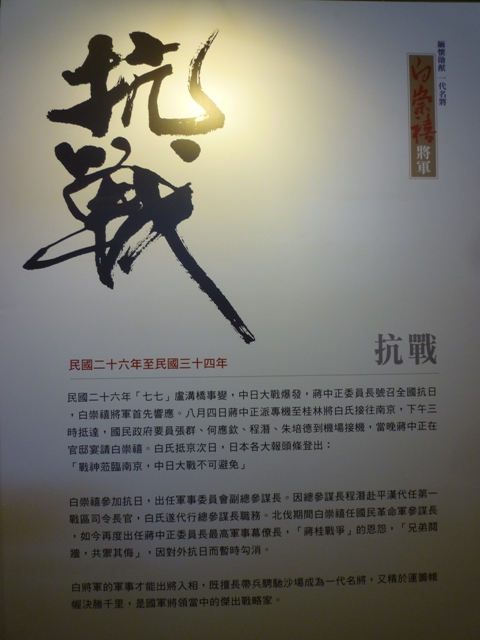 抗戰
緬懷勛猷 一代名將
白崇禧將軍
抗戰
民國二十六年至民國三十四年
民國二十六年「七七」盧溝橋事變，中日大戰爆發，蔣中正委員長號召全國抗日
，白崇禧將軍首先響應。八月四日蔣中正派專機至桂林將白氏接往南京，下午三
時抵達，國民政府要員張群、何應欽、程潛、朱培德到機場接機，當晚蔣中正在
官邸宴請白崇禧。白氏抵京次日，日本各大報頭條登出：
「戰神蒞臨南京，中日大戰不可避免」
白崇禧參加抗日，出任軍事委員會副總參謀長。因總參謀長程潛赴平漢代任第一
戰區司令長官，白氏遂代行總參謀長職務。北伐期間白崇禧任國民革命軍參謀長
，如今再度出任蔣中正委員長最高軍事幕僚長，「蔣桂戰爭」的恩怨，「兄弟鬩
牆，共禦其侮」，因對外抗日而暫時勾消。
白將軍的軍事才能出將入相，既擅長帶兵騁馳沙場成為一代名將，又精於運籌帷
幄決勝千里，是國軍將領當中的傑出戰略家。